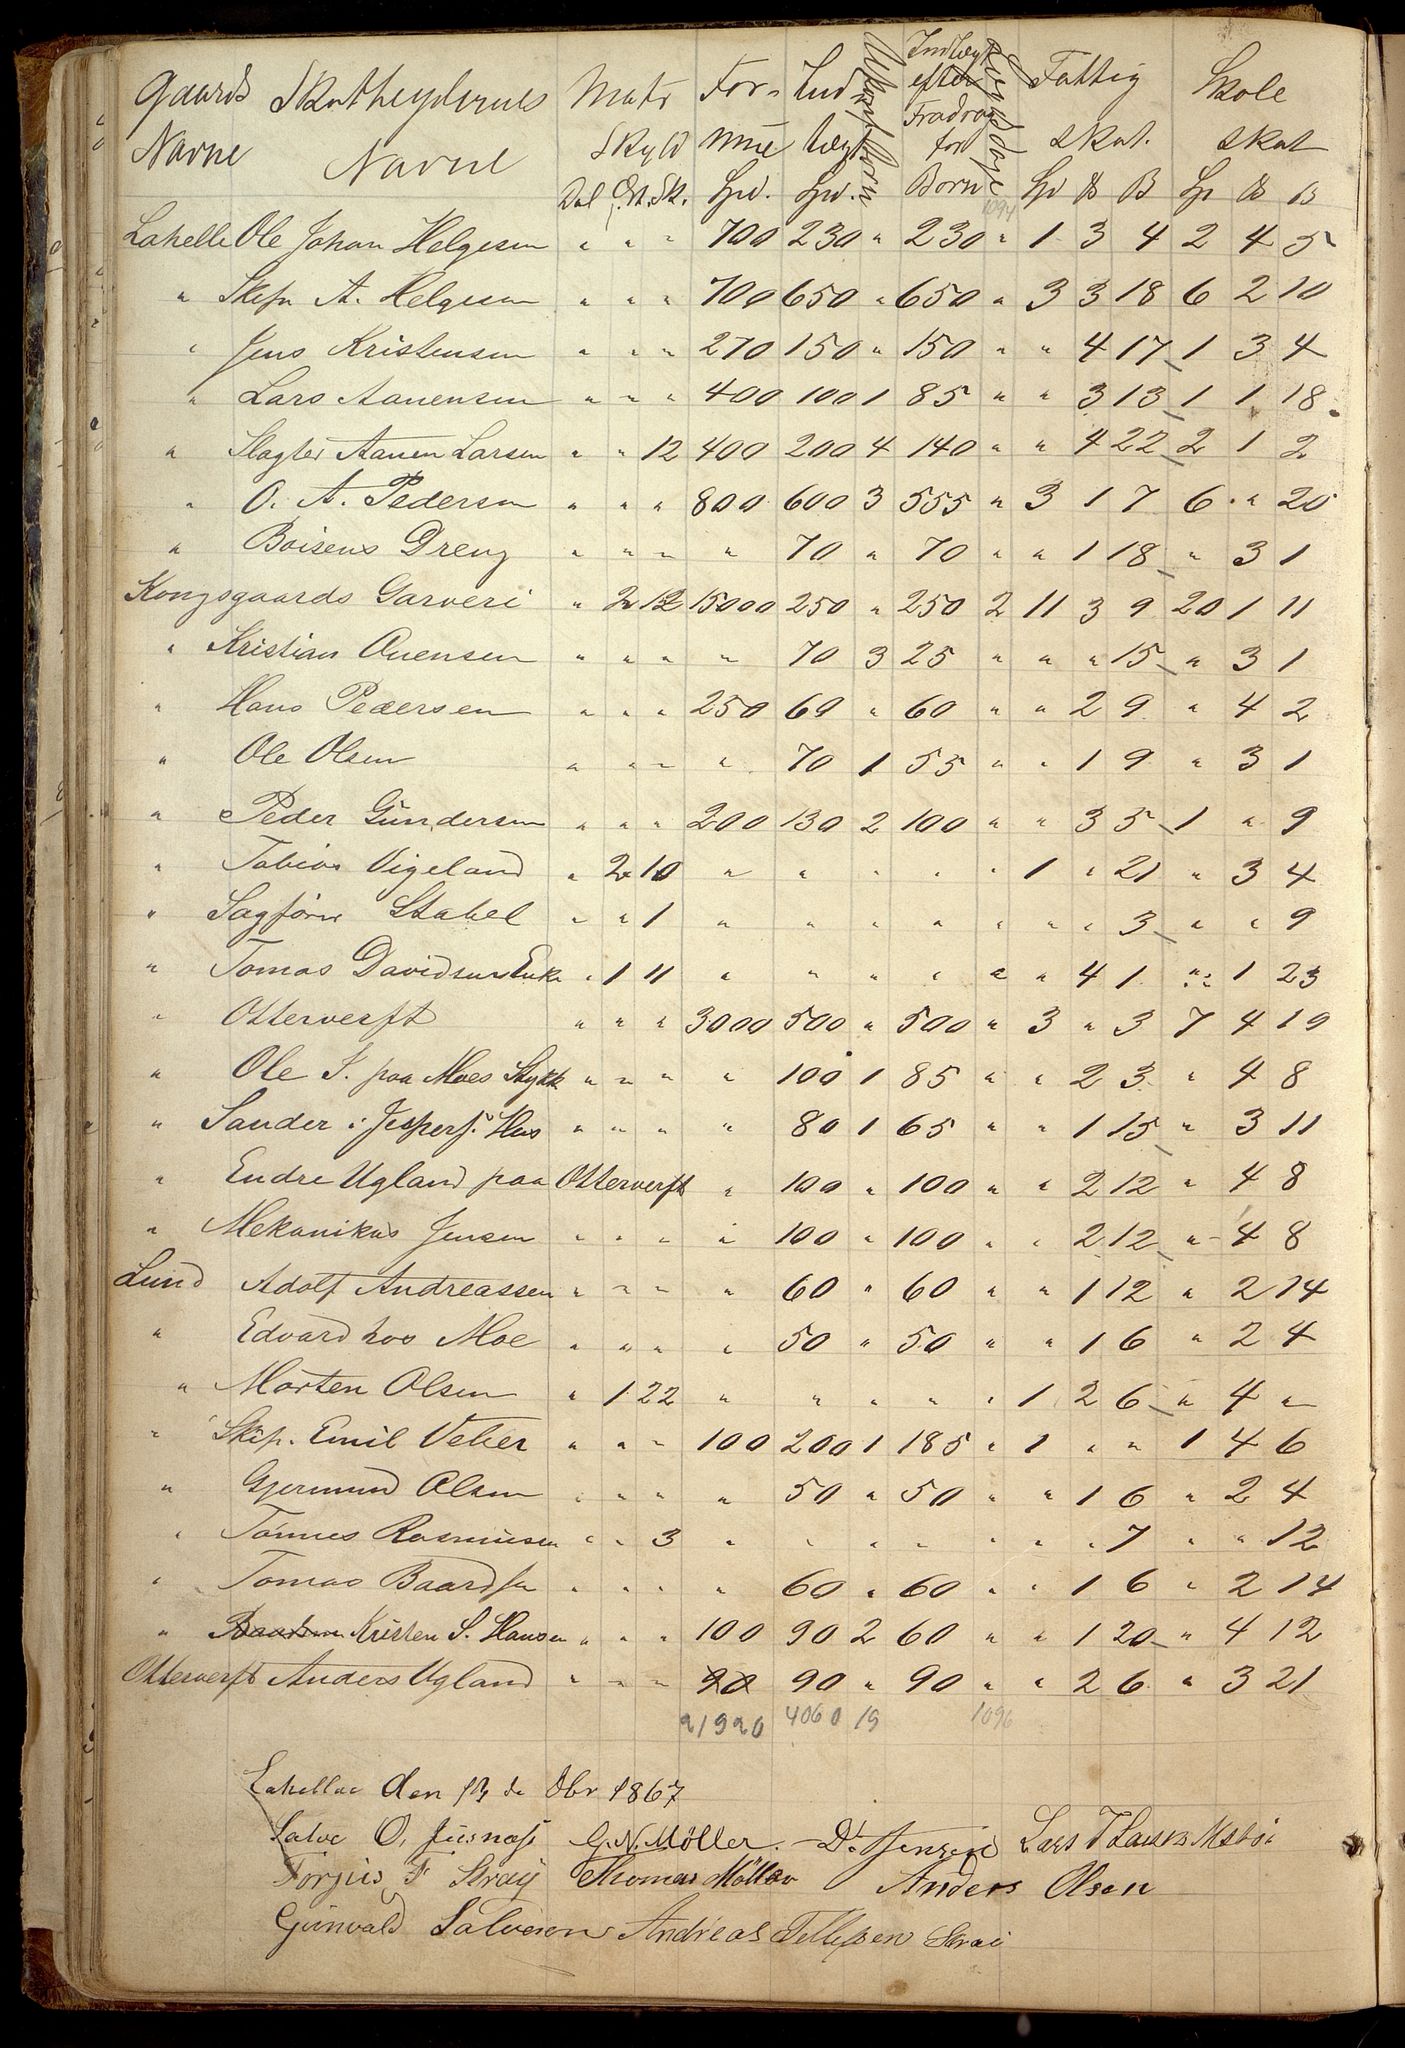 Gaards Skatteydernes Matr For- Ind Indtægt Fattig Skole
Navne Navne Skyld mue tægt efter Fradrag for skat. skat
Dal Ort. Sk. Spd. Spd. Børn Børn Sp ß Sp ß
1094
Lahelle Ole Johan Helgesen " " " 700 230 " 230 " 1 3 4 2 4 5
" Skipr A. Helgesen " " " 700 650 " 650 " 3 3 18 6 2 10
" Jens Kristensen " " " 270 150 " 150 " " 4 17 1 3 4
" Lars Aanensen " " " 400 100 1 85 " " 3 13 1 1 18
" Slagter Aanen Larsen " " 12 400 200 4 140 " " 4 22 2 1 2
" O. A. Pedersen " " " 800 600 3 555 " 3 1 7 6 " 20
" Boisens Dreng " " " " 70 " 70 " " 1 18 " 3 1
Kongsgaards Garveri " 2 12 15000 250 " 250 2 11 3 9 20 1 11
" Kristian Ouensen " " " " 70 3 25 " " " 15 " 3 1
" Hans Pedersen " " " 250 60 " 60 " " 2 9 " 4 2
" Ole Olsen " " " " 70 1 55 " " 1 9 " 3 1
" Peder Gundersen " " " 200 130 2 100 " " 3 5 1 " 9
" Tobias Vigeland " 2 10 " " " " " 1 " 21 " 3 4
" Sagfører Stabel " " 1 " " " " " " " 3 " " 9
" Tomas Davidsens Enke " 1 11 " " " " " " 4 1 " 1 23
" Otterverft " " " 3000 500 " 500 " 3 " 3 7 4 19
" Ole J. paa Moes Stykk " " " " 100 1 85 " " 2 3 " 4 8
" Sander i Jespers. Hus " " " " 80 1 65 " " 1 15 " 3 11
" Endre Ugland paa Otterverft " 100 " 100 " " 2 12 " 4 8
" Mekanikus Jensen " " " " 100 " 100 " " 2 12 " 4 8
Lund Adolf Andreassen " " " " 60 " 60 " " 1 12 " 2 14
" Edvard hos Moe " " " " 50 " 50 " " 1 6 " 2 4
" Morten Olsen " 1 22 " " " " " 1 2 6 " 4 "
" Skip. Emil Veber " " " 100 200 1 185 " 1 " " 1 4 6
" Gjermund Olsen " " " " 50 " 50 " " 1 6 " 2 4
" Tønnes Rasmusen " " 3 " " " " " " " 7 " " 12
" Tomas Baardsen " " " " 60 " 60 " " 1 6 " 2 14
" Kristen S. Hansen " " " 100 90 2 60 " " 1 20 " 4 12
Otterverft Anders Ugland " " " 90 90 " 90 " " 2 6 " 3 21
21920 4060 19 1096
Lahelle den 13 de Obr 1867
Salve O. G. N. Møller. D. Jensen Lars T
Torjus F Stray Thomas Møller Anders Olsen
Gunvald Salvesen Andreas Tellefsen Strai